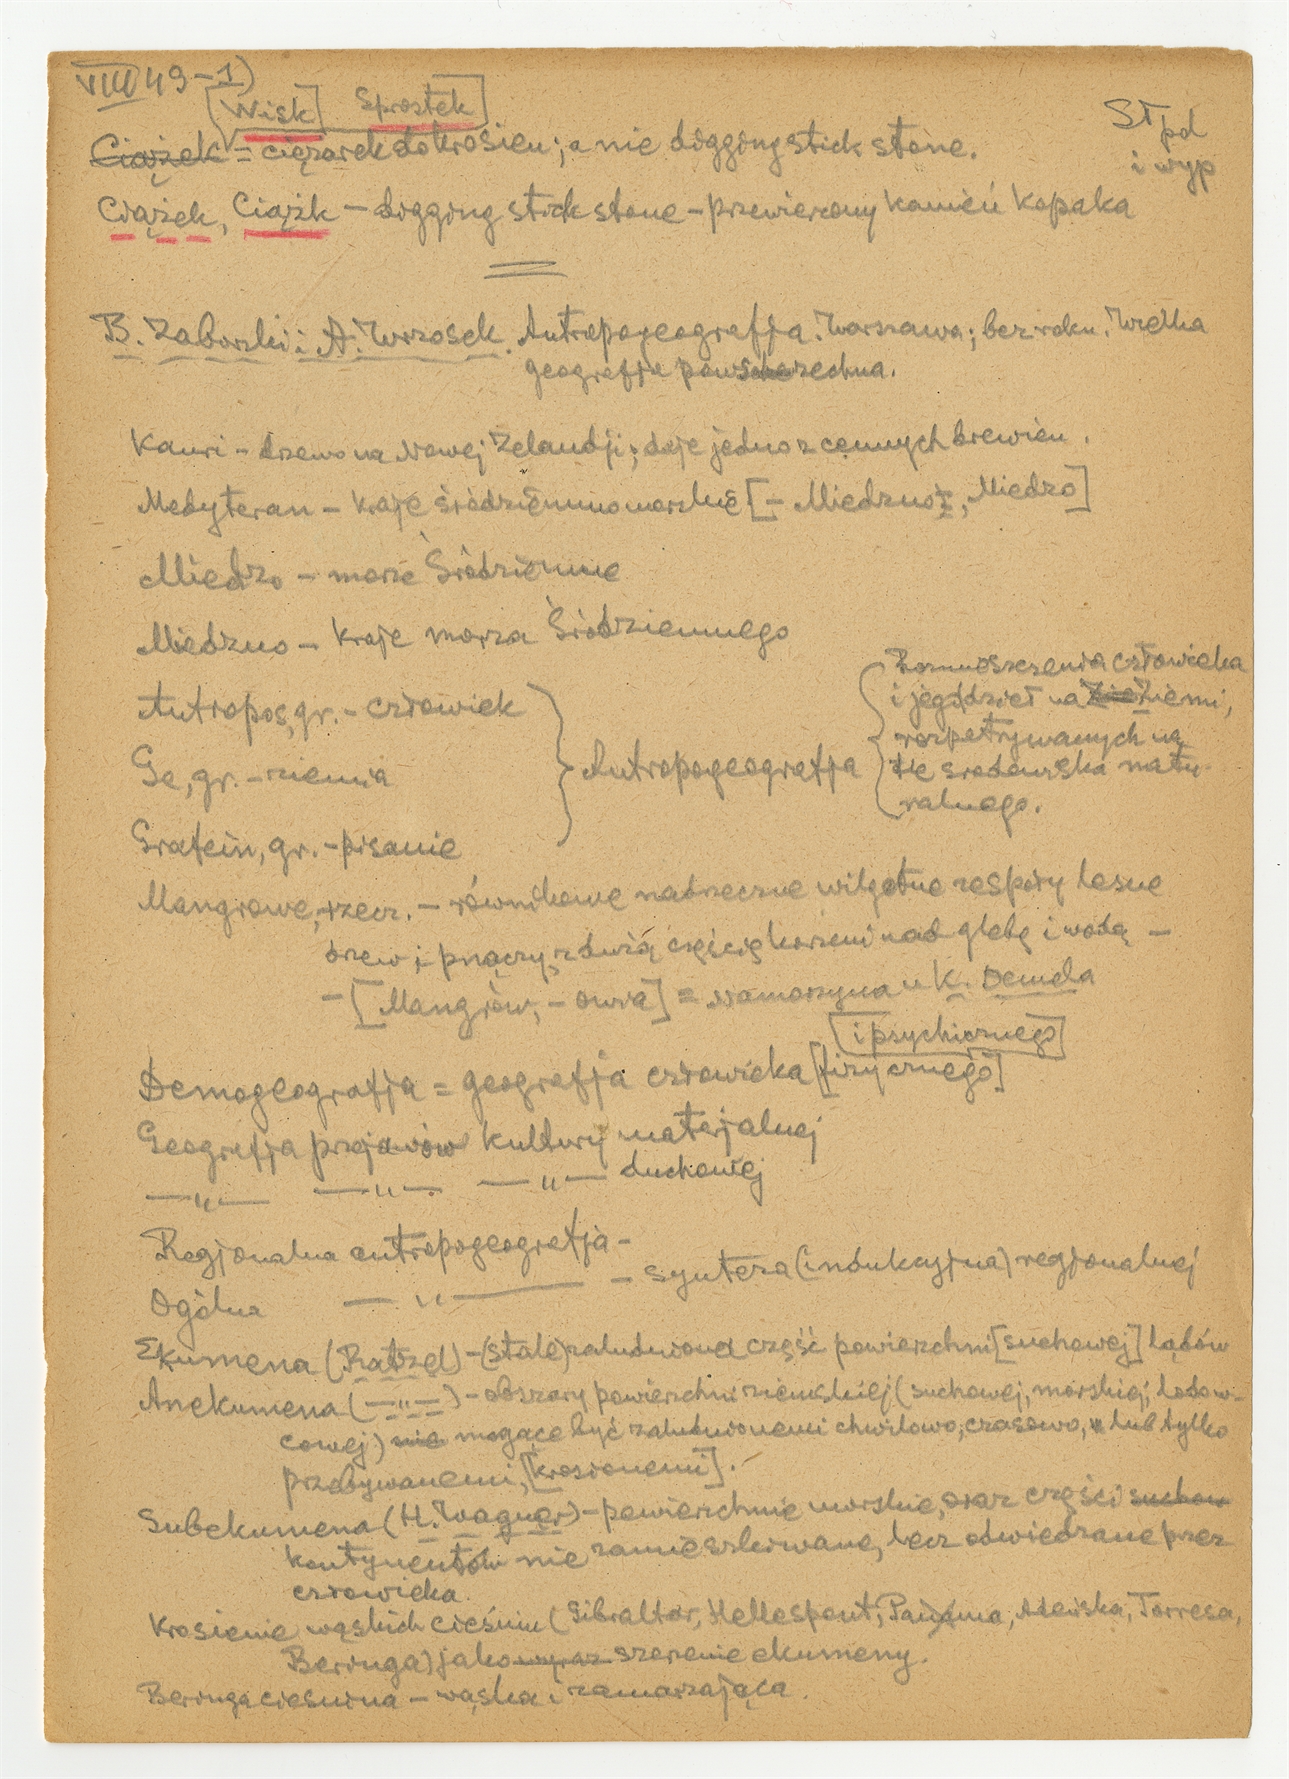 VIII 49-1)
[Wisk] Sprostek]
Ciążek = ciężarek do krosien; a nie digging stick stone.
St pd
i wyp
Ciążek, Ciążk – digging stick stone – przewiercony kamień kopaka
B. Zaborski i A. Wrzosek. Antropogeografja. Warszawa; bez roku. Wielka
geografja powszechna.
Kauri – drzewo na Nowej Zelandji; daje jedno z cennych drewien.
Medyteran – kraje śródziemnomorskie [– Miedzno, Miedzo]
Miedzo – morze Śródziemne
Miedzno – kraje morza Śródziemnego
Antropos, gr. – człowiek
Ge, gr. – ziemia
Grafein, gr. – pisanie
Antropogeografja
Rozmieszczenia człowieka
i jego dzieł na Zie Ziemi,
rozpatrywanych na
tle środowiska natu-
ralnego.
Mangrowe, rzecz. – równikowe nadrzeczne wilgotne zespoły leśne
drzew i pnączy, z dużą częścią korzeni nad glebą i wodą –
– [Mangrów, – owia] = Namorzyna u K. Demela
[i psychicznego]
Demogeografja = geografja człowieka [fizycznego]
Geografja przejawów kultury materjalnej
—„— —„— —„— duchowej
Regjonalna antropogeografja –
Ogólna —„— – synteza (indukcyjna) regjonalnej
Ekumena (Ratzel) – (stale) zaludniona część powierzchni [suchowej] lądów
Anekumena (—„—) – obszary powierzchni ziemskiej (suchowej, morskiej, lodow-
cowej) nie mogące być zaludnionemi chwilowo, czasowo, lub tylko
przebywanemi, [krosionemi].
Subekumena (H. Wagner) – powierzchnie morskie, oraz części suchow
kontynentów nie zamieszkiwane, lecz odwiedzane przez
człowieka.
Krosienie wąskich cieśnin (Gibraltar, Hellespont, Panama, Adeńska, Torresa,
Beringa) jako wyraz szerzenie ekumeny.
Beringa cieśnina – wąska i zamarzająca.